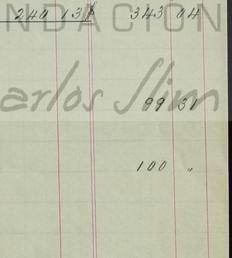 NDACIÓN
240 13 343 04
arlos Slim
99 31
100 "